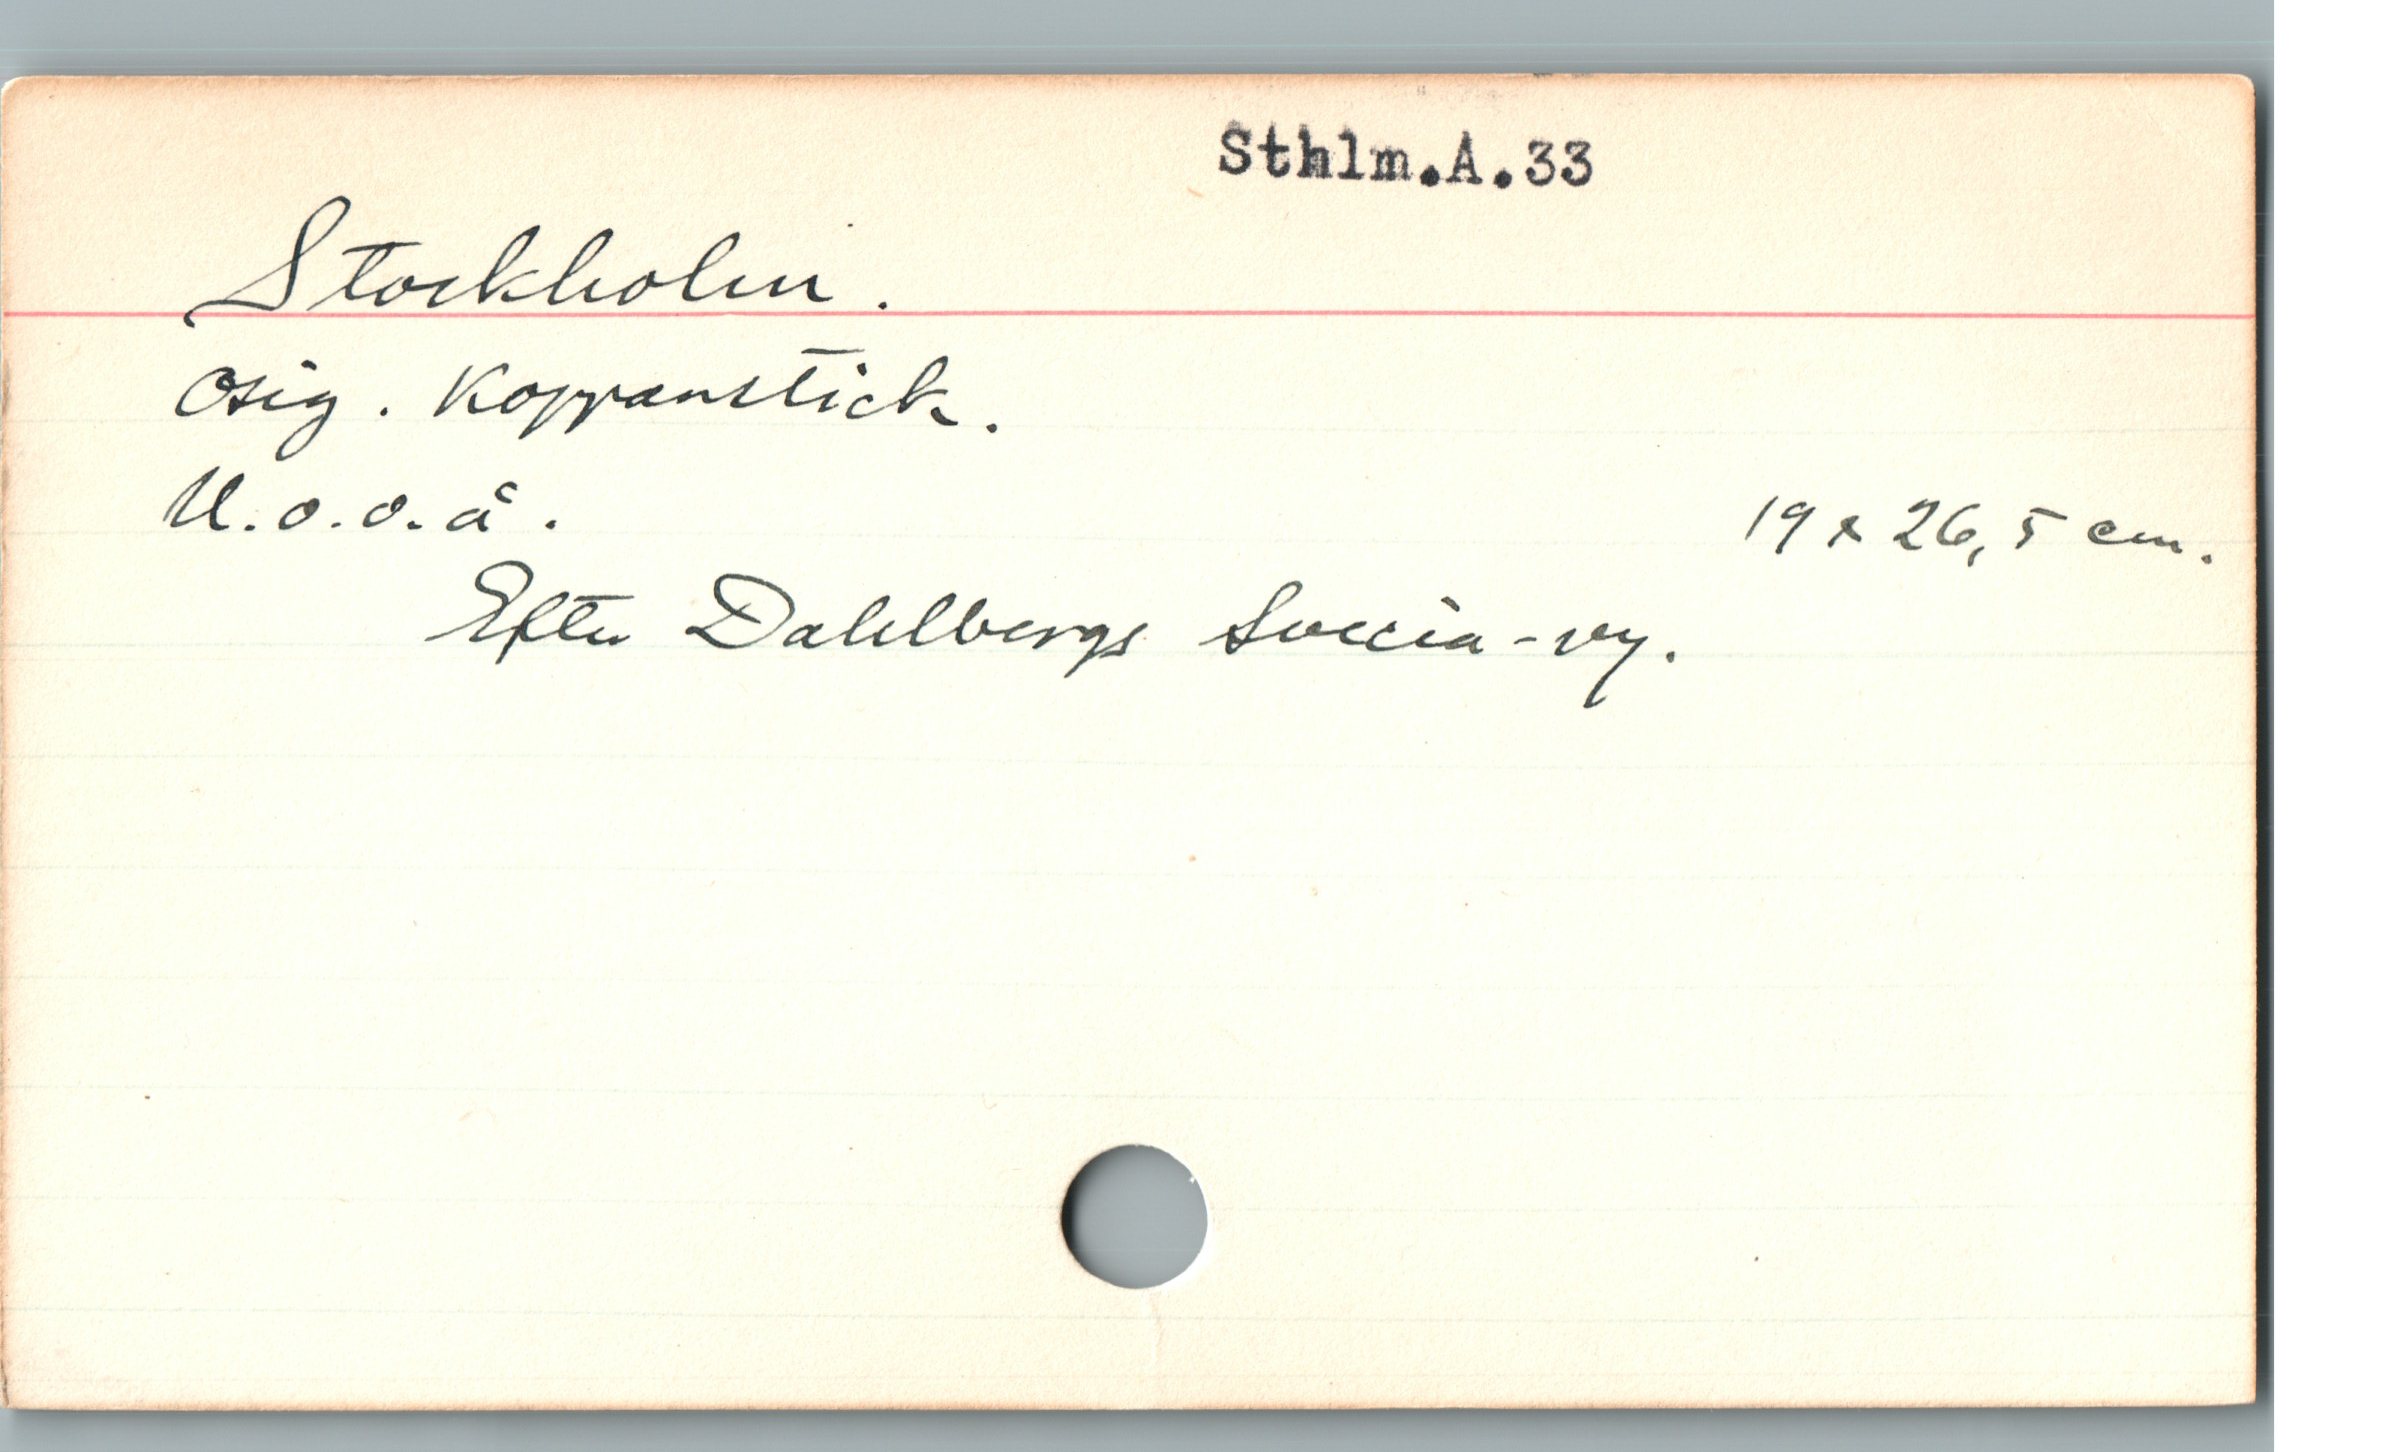 Sthlm.A.33
Stockholm.
Osig. Kopparstick.
U.o.o.å.
19 x 26,5 cm.
Efter Dahlbergs Suecia-vy.